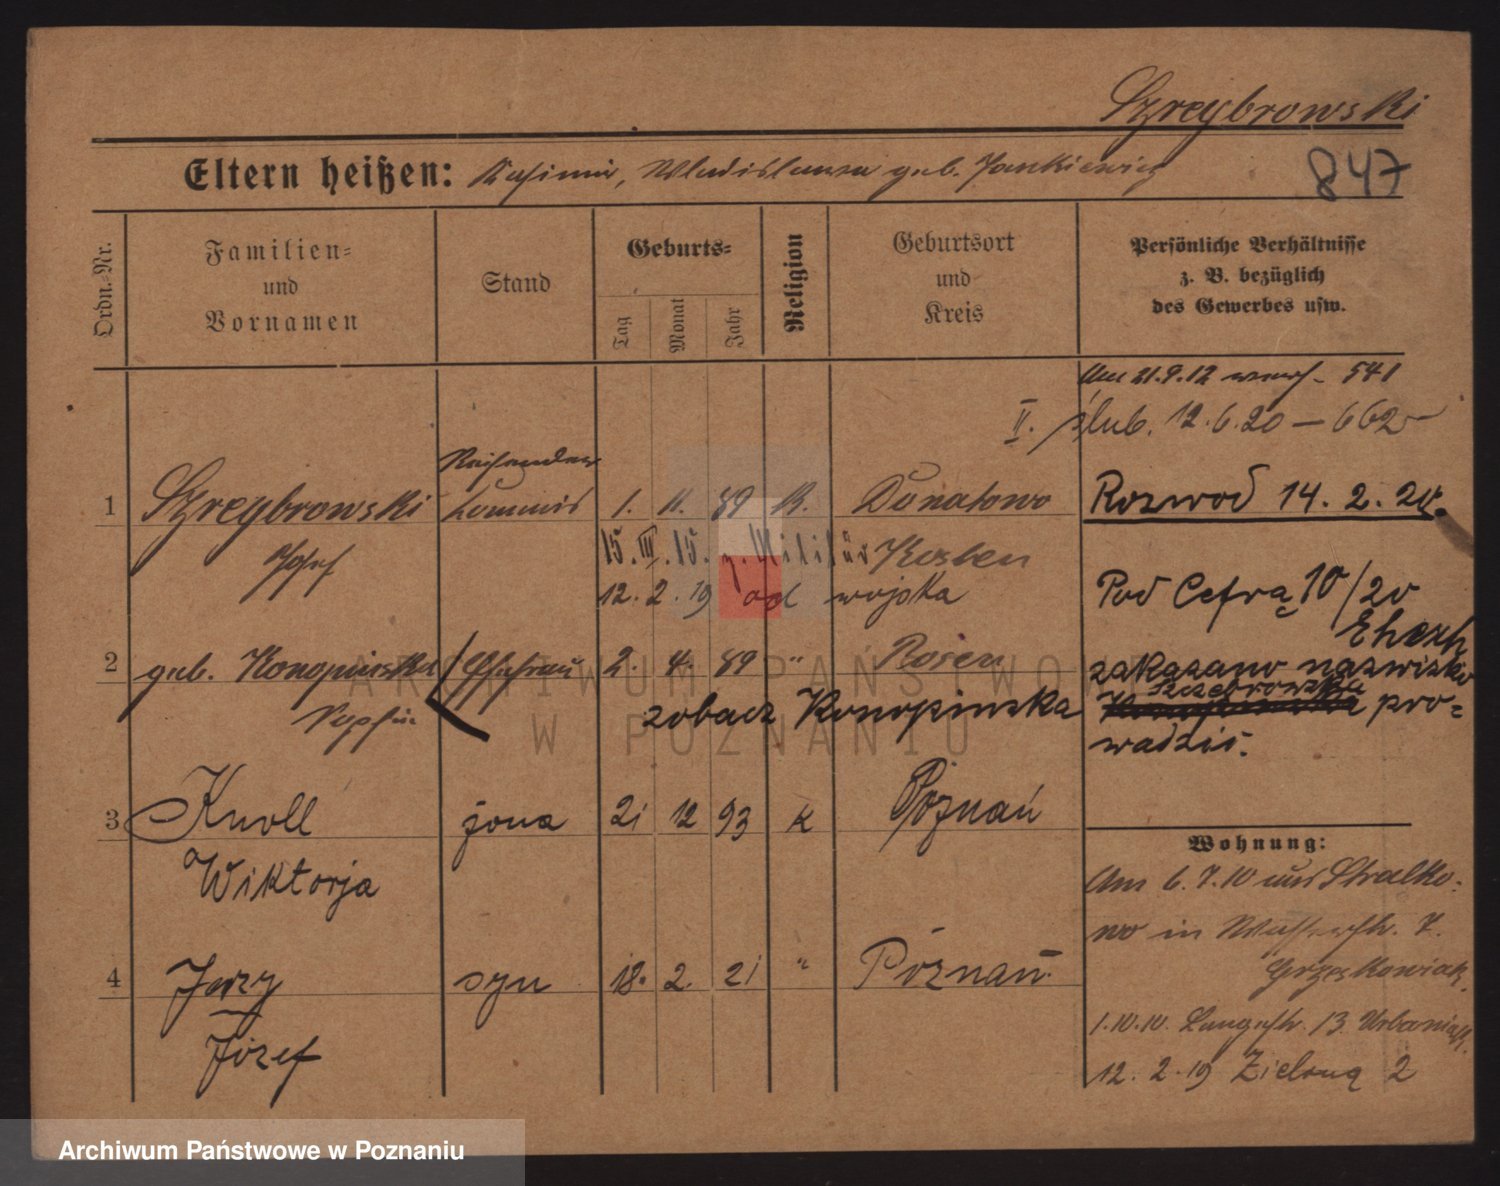 Szreybrowski
Eltern heißen: Kasimir, Wladislawa geb. Jankiewicz
847
Ordn.-Nr.
Familien-
und
Vornamen
Stand
Geburts-
Tag
Monat
Jahr
Religion
Geburtsort
und
Kreis
Persönliche Verhältnisse
z. B. bezüglich
des Gewerbes usw.
Am 21.9.12 541
II. ślub. 12.6.20 – 662
Reisender
1 Szreybrowski Kommis 1. 11. 89 K. Donatowo
Rozwod 14. 2. 24.
Josef
15. III. 15. z. Militär Kosten
12. 2. 19 od wojska
Pod Cefrą 10/20
2 geb. Konopinska Ehefrau 2. 4. 89 " Posen
zakazano nazwisko
Szczebrowska
Konopinska pro-
wadzić.
Sophie zobacz Konopinska
3 Knoll żona 21 12 93 k Poznań
Wiktorja
4 Jerzy syn 18. 2. 21 " Poznań.
Józef
Wohnung:
Am 6. 7. 10 aus Stralko-
wo in Wasserstr. 7.
Grzeskowiak.
1.10.10. Langestr. 13. Urbaniak.
12. 2. 19 Zieloną 2
ARCHIWUM PAŃSTWOWE
W POZNANIU
Archiwum Państwowe w Poznaniu